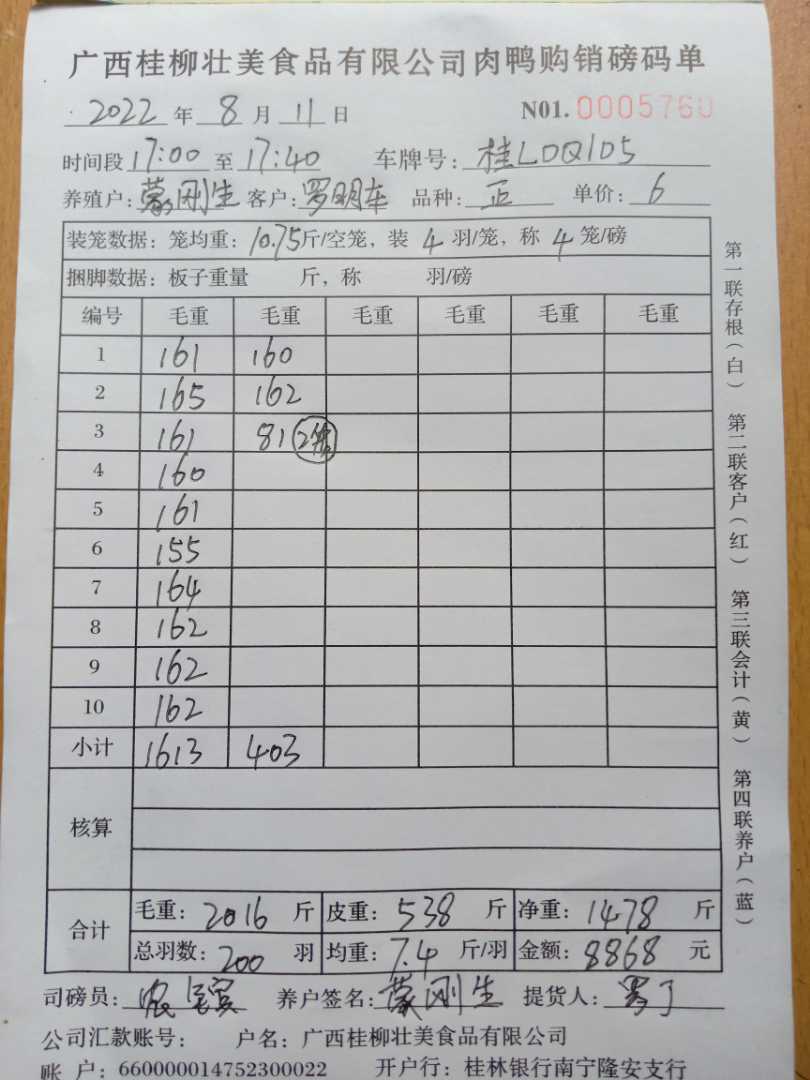 广西桂柳壮美食品有限公司肉鸭购销磅码单
2022 年 8 月 11 日 N01. 0005760
时间段 17:00 至 17:40 车牌号: 桂LDQ105
养殖户: 蒙刚生 客户: 罗明车 品种: 正 单价: 6
装笼数据: 笼均重: 10.75 斤/空笼, 装 4 羽/笼, 称 4 笼/磅
捆脚数据: 板子重量 斤, 称 羽/磅
编号 毛重 毛重 毛重 毛重 毛重 毛重
1 161 160
2 165 162
3 161 81
4 160
5 161
6 155
7 164
8 162
9 162
10 162
小计 1613 403
核算
合计 毛重: 2016 斤 皮重: 538 斤 净重: 1478 斤
总羽数: 200 羽 均重: 7.4 斤/羽 金额: 8868 元
司磅员: 养户签名: 蒙刚生 提货人: 罗
公司汇款账号: 户名: 广西桂柳壮美食品有限公司
账 户: 660000014752300022 开户行: 桂林银行南宁隆安支行
第一联存根(白) 第二联客户(红) 第三联会计(黄) 第四联养户(蓝)